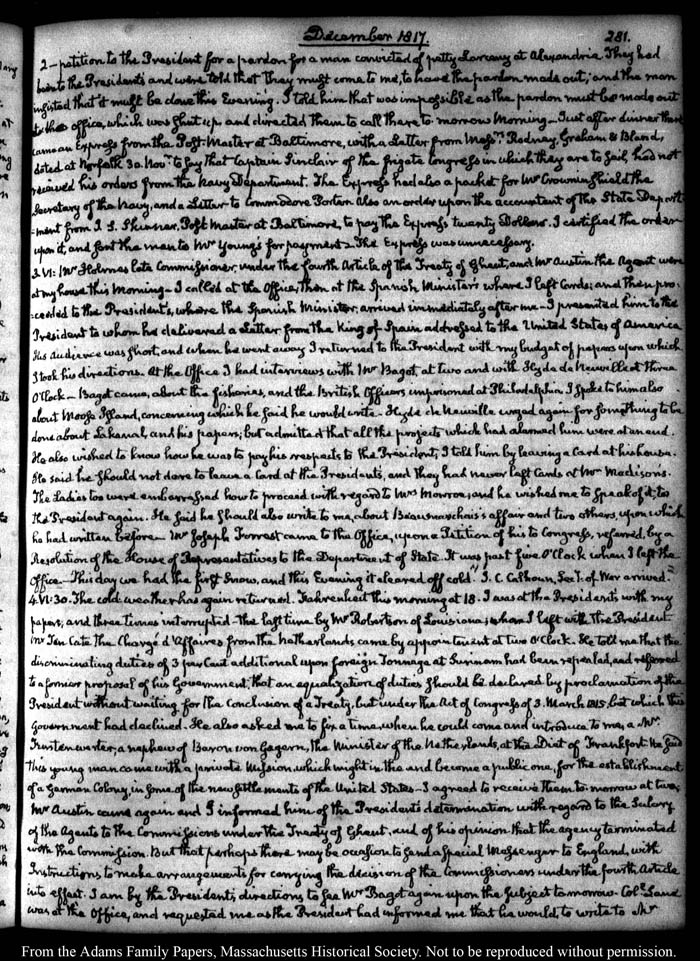 December 1817.
281.
2 — petition to the President for a pardon for a man convicted of petty Larceny at Alexandria. They had
been to the Presidents and were told that they must come to me, to have the pardon made out; and the man
insisted that it must be done this Evening. I told him that was impossible as the pardon must be made out
at the office, which was shut up and directed them to call there to morrow Morning — Just after dinner there
came an Express from the Post-Master at Baltimore, with a Letter from Messrs. Rodney, Graham & Bland,
dated at Norfolk 30. Novr. to say that Captain Sinclair of the frigate Congress in which they are to sail, had not
received his orders from the Navy Department. The Express had also a packet for Mr Crowninshield the
Secretary of the Navy, and a Letter to Commodore Porter. Also an order upon the accountant of the State Depart-
-ment from J. S. Skinner, Post Master at Baltimore, to pay the Express twenty Dollars. I certified the order
upon it, and sent the man to Mr Young's for payment — The Express was unnecessary.
3. VI: Mr Holmes late Commissioner, under the fourth Article of the Treaty of Ghent, and Mr Austin the Agent were
at my house this Morning — I called at the Office, then at the Spanish Minister's where I left Cards; and then pro-
-ceeded to the President's, where the Spanish Minister, arrived immediately after me — I presented him to the
President to whom he delivered a Letter from the King of Spain addressed to the United States of America
His audience was short, and when he went away I returned to the President with my budget of papers upon which
I took his directions. At the Office I had interviews with Mr Bagot, at two and with Hyde de Neuville at three
O'Clock — Bagot came, about the fisheries, and the British Officers imprisoned at Philadelphia. I spoke to him also
about Moose Island, concerning which he said he would write — Hyde de Neuville urged again for something to be
done about Lakanal, and his papers; but admitted that all the projects which had alarmed him were at an end.
He also wished to know how he was to pay his respects to the President; I told him by leaving a Card at his house.
He said he should not dare to leave a Card at the Presidents, and they had never left Cards at Mr Madison's.
The Ladies too were embarrassed how to proceed with regard to Mrs Monroe; and he wished me to speak of it, to
the President again. He said he should also write to me, about Beaumarchais's affair and two others, upon which
he had written before — Mr Joseph Forrest came to the Office, upon a Petition of his to Congress, referred, by a
Resolution of the House of Representatives to the Department of State. It was past five O'Clock when I left the
Office — This day we had the first Snow, and this Evening it cleared off cold. J. C. Calhoun, Sec'y. of War arrived.
4. VI:30. The cold weather has again returned. Fahrenheit this morning at 18. I was at the Presidents with my
papers, and three times interrupted — the last time by Mr Robertson of Louisiana; whom I left with the President
Mr Ten Cate the Chargé d'Affaires from the Netherlands, came by appointment at two O'Clock. He told me that the
discriminating duties of 3 per Cent additional upon foreign Tonnage at Surinam had been repealed, and referred
to a former proposal of his Government, that an equalization of duties should be declared by proclamation of the
President without waiting for the Conclusion of a Treaty, but under the Act of Congress of 3. March 1815, but which this
Government had declined. He also asked me to fix a time, when he could come and introduce to me, a Mr.
Furstenwarter, a nephew of Baron von Gagern, the Minister of the Netherlands, at the Diet of Frankfort. He said
this young man came with a private Mission, which might in the end become a public one, for the establishment
of a German Colony, in some of the new settlements of the United States — I agreed to receive them to-morrow at two.
Mr Austin came again and I informed him of the President's determination with regard to the Salary
of the Agents to the Commissions under the Treaty of Ghent, and of his opinion that the agency terminated
with the Commission. But that perhaps there may be occasion to send a special Messenger to England, with
Instructions to make arrangements for carrying the decision of the Commissioners under the fourth Article
into effect. I am by the President's directions to see Mr Bagot again upon the subject to morrow. Coll. Lane
was at the Office, and requested me as the President had informed me that he would, to write to Mr
From the Adams Family Papers, Massachusetts Historical Society. Not to be reproduced without permission.